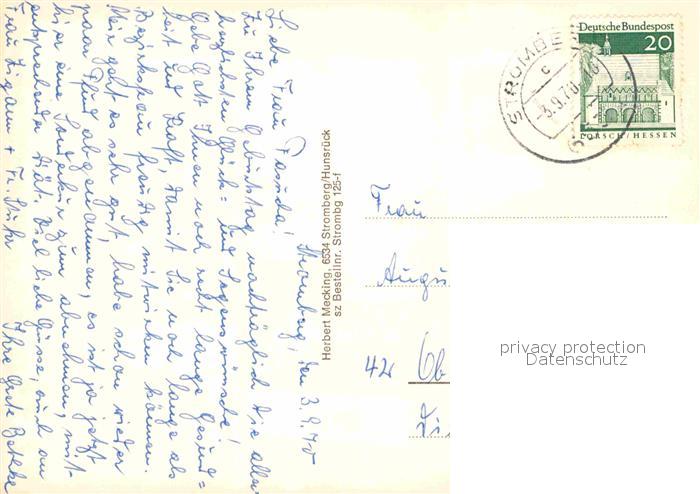 Stromberg, den 3.9.70
Liebe Frau
Zu Ihrem Geburtstag nachträglich die aller-
herzlichsten Glück- und Segenswünsche!
Gebe Gott Ihnen noch recht lange Gesund-
heit und Kraft, damit Sie noch lange als
Bezirksfrau freudig mitwirken können.
Mir geht es sehr gut, habe schon wieder
paar Pfund abgenommen, es ist ja jetzt
hier eine Sonderkur zum abnehmen, mit
entsprechender Diät. Viel liebe Grüsse, auch an
Frau + Fr. Ihre Grete
Herbert Mecking, 6534 Stromberg/Hunsrück
sz Bestellnr. Strombg 125-f
Deutsche Bundespost
20
LORSCH/HESSEN
STROMBE
c
-3.9.70
Frau
Augu
42 Ob
Di
privacy protection
Datenschutz